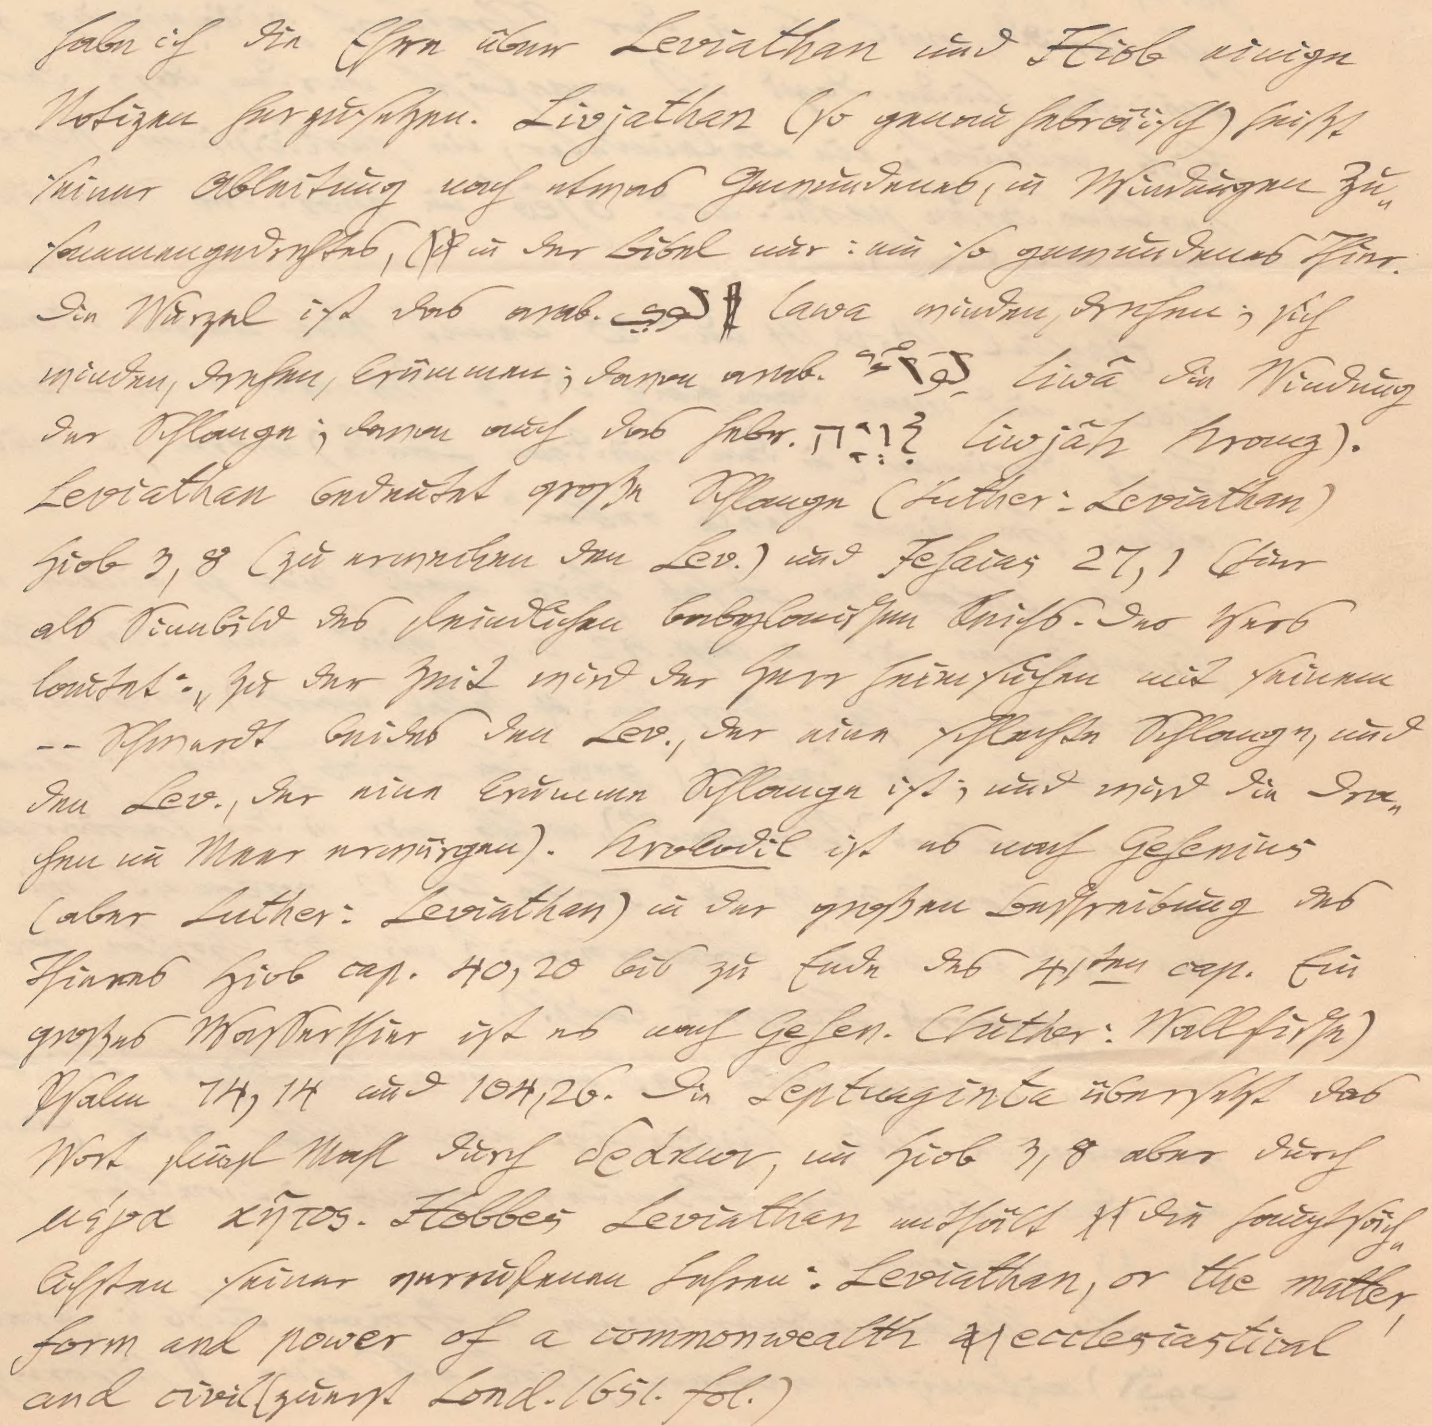 habe ich die Ehre über Leviathan und Hiob einige
Notizen herzusetzen. Livjathan (so genau hebräisch) heißt
seiner Ableitung nach etwas Gewundenes, in Windungen Zu„
sammengedrehtes, in der Bibel nur: ein so gewundenes Thier.
Die Wurzel ist das arab. لوى lawa winden, drehen; sich
winden, drehen, krümmen; davon arab. liwâ die Windung
der Schlange; davon auch das hebr. לִוְיָה liwjâh Kranz).
Leviathan bedeutet große Schlange (Luther: Leviathan)
Hiob 3,8 (zu erwecken den Lev.) und Jesaias 27,1 (hier
als Sinnbild des feindlichen babylonischen Reichs. Der Vers
lautet: „Zu der Zeit wird der Herr heimsuchen mit seinem
-- Schwerdt beides den Lev., der eine schlechte Schlange, und
den Lev., der eine krumme Schlange ist; und wird die Dra„
chen im Meer erwürgen). Krokodil ist es nach Gesenius
(aber Luther: Leviathan) in der großen Beschreibung des
Thieres Hiob cap. 40,20 bis zu Ende des 41ten cap. Ein
großes Wasserthier ist es nach Gesen. (Luther: Wallfische)
Psalm 74,14 und 104,26. Die Septuaginta übersetzt das
Wort fünf Mal durch δράκων, in Hiob 3,8 aber durch
μέγα κῆτος. Hobbes Leviathan enthält die hauptsäch„
lichsten seiner verrufenen Lehren: Leviathan, or the matter,
form and power of a commonwealth ecclesiastical
and civil (zuerst Lond. 1651. fol.)